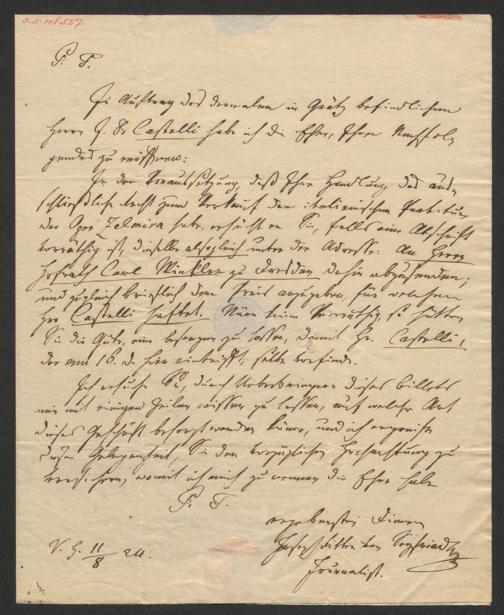 P. T.
Im Auftrag des dermalen in Grätz befindlichen
Herrn J. F. Castelli habe ich die Ehre, Ihnen Nachfol-
gendes zu eröffnen:
In der Voraussetzung, daß Ihre Handlung das aus-
schließliche Recht zum Verkauf der italienischen Partitur
der Oper Zelmira habe, ersucht er Sie, falls eine Abschrift
vorräthig ist, dieselbe alsogleich unter der Adresse: An Herrn
Hofrath Carl Winkler zu Dresden, dahin abzusenden;
und zugleich brieflich den Preis anzugeben, für welchen
Hr Castelli haftet. Wäre keine vorräthig, so hätten
Sie die Güte, eine besorgen zu lassen, damit Hr. Castelli,
der am 16. d. hier eintrifft, selbe vorfinde.
Ich ersuche Sie, durch Ueberbringer dieses Billets
mir mit einigen Zeilen wissen zu lassen, auf welche Art
dieses Geschäft besorgt werden könne, und ich ergreife
diese Gelegenheit Sie der vorzüglichen Hochachtung zu
versichern, womit ich mich zu nennen die Ehre habe
P. T.
ergebenster Diener
Joseph Ritter von Seyfried
Journalist.
V. H. 11/8 24.